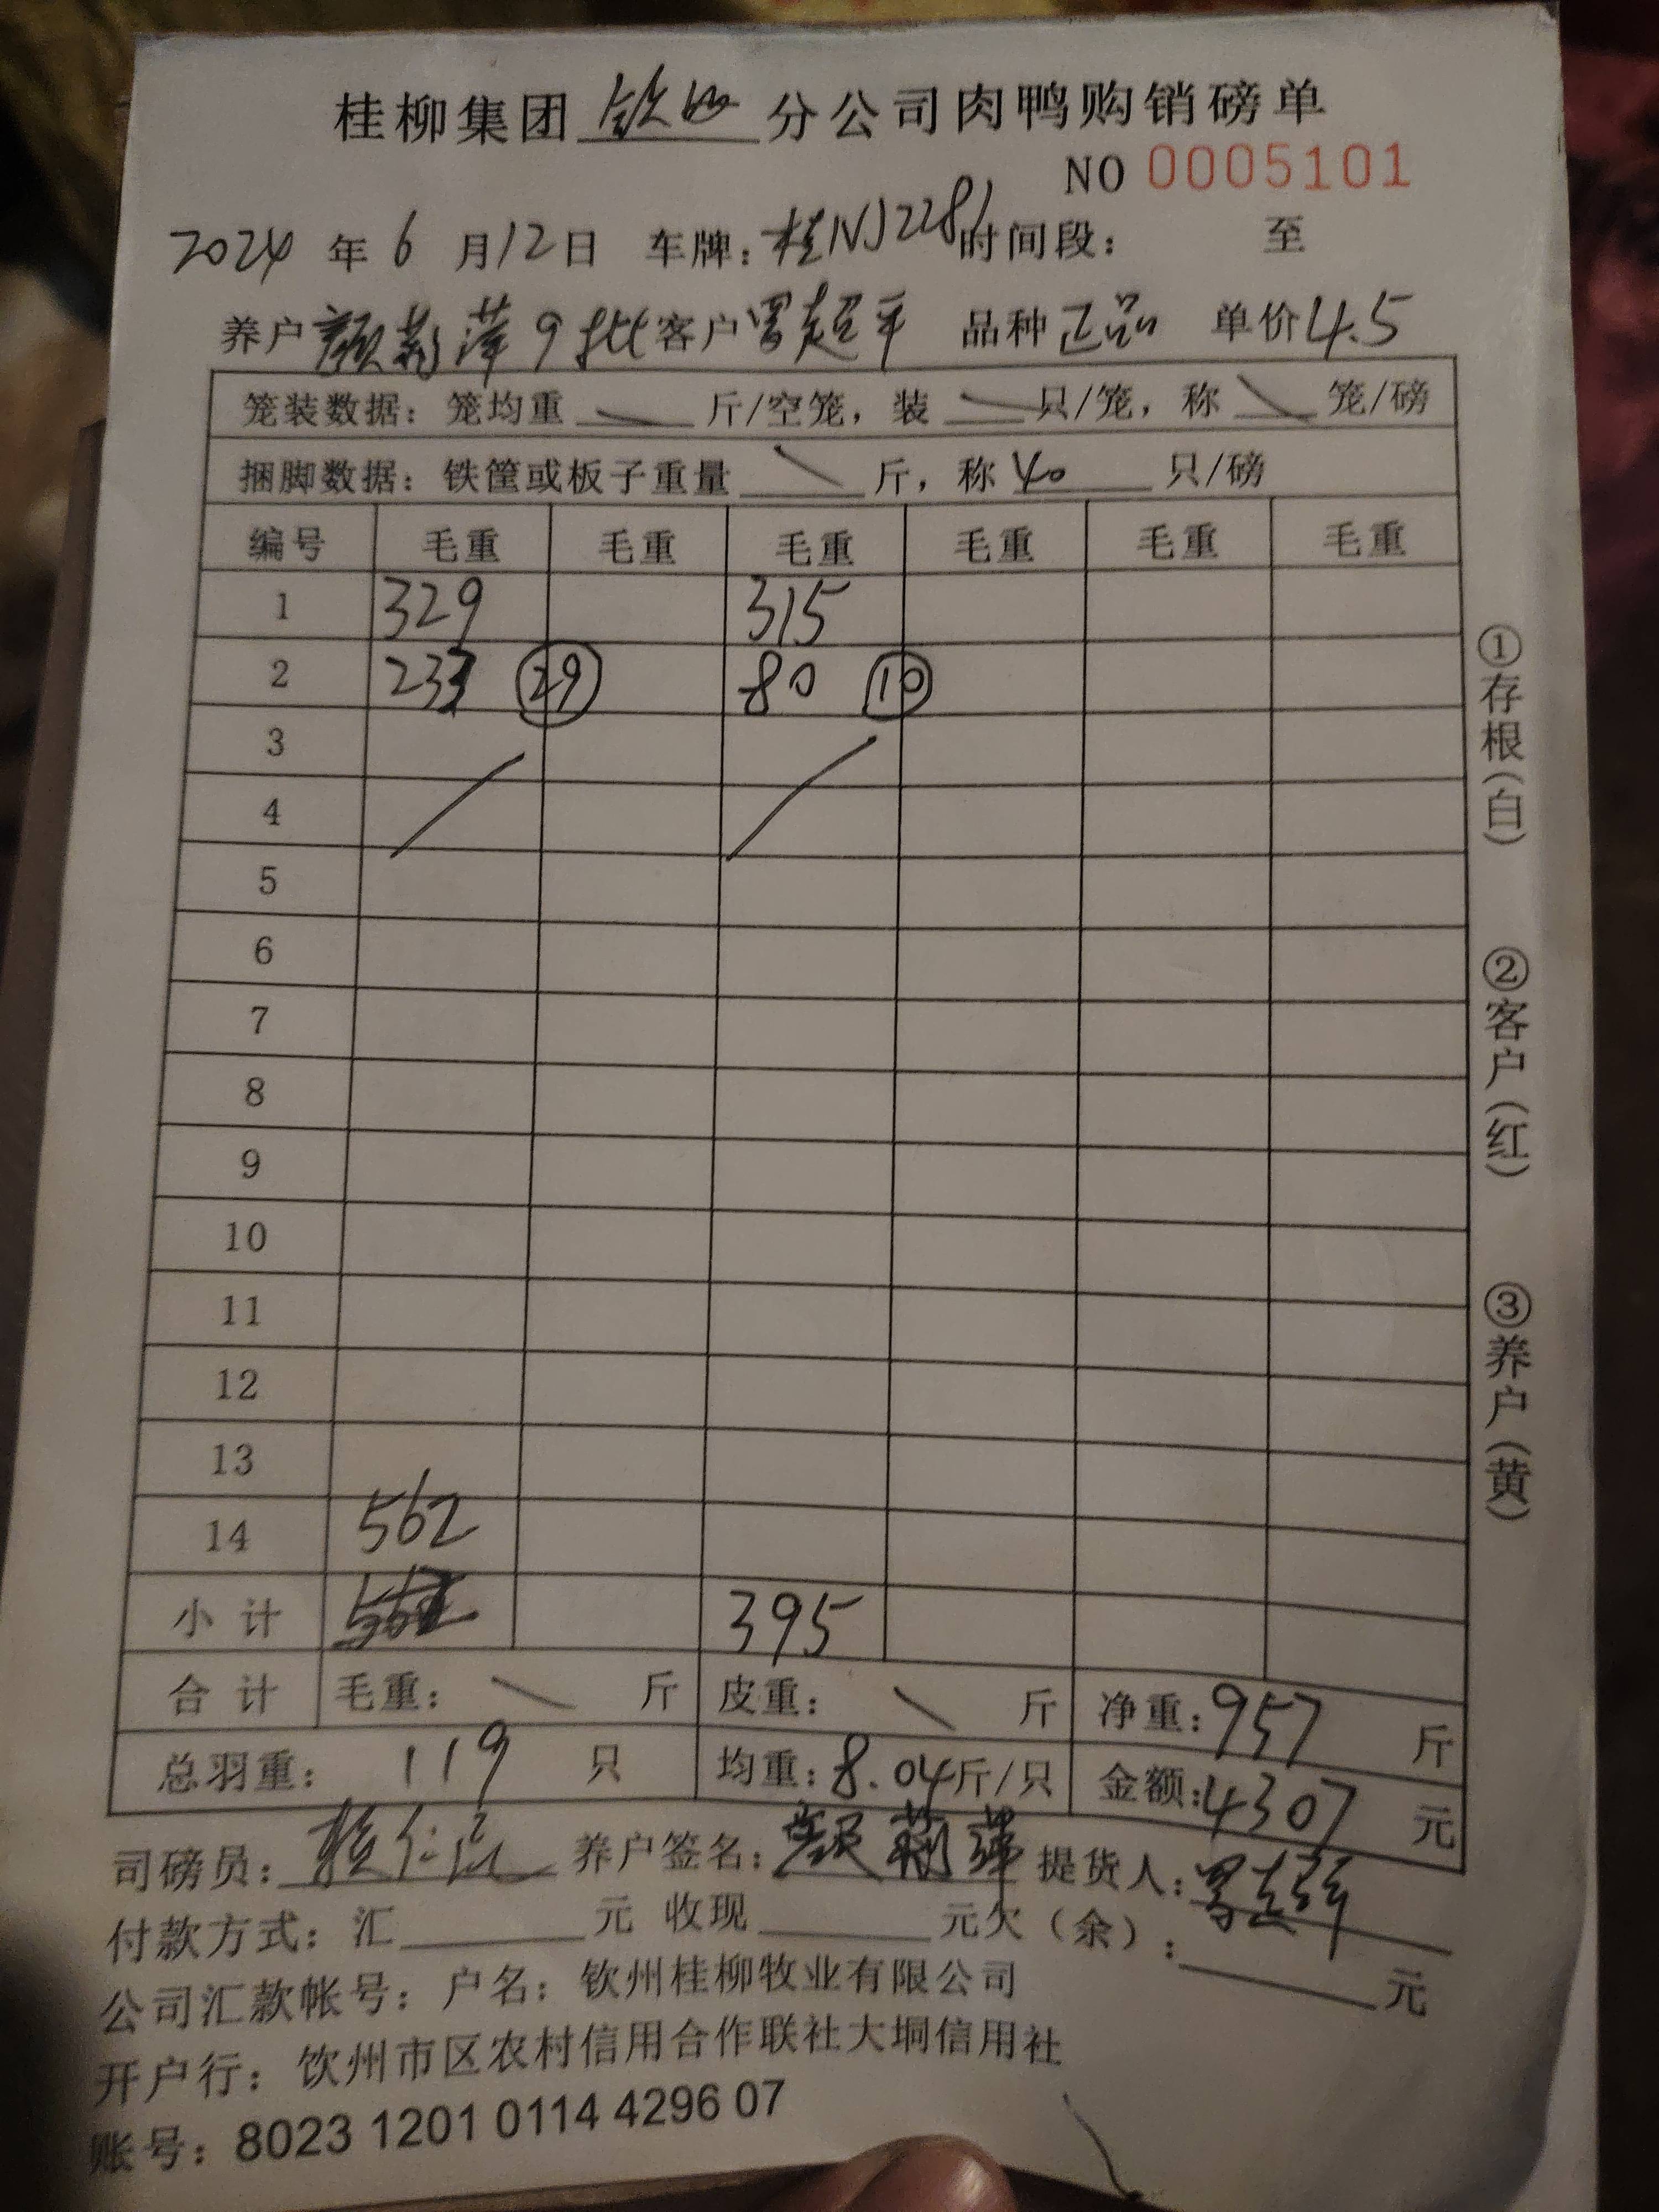 桂柳集团 钦州 分公司肉鸭购销磅单
NO 0005101
2024 年 6 月 12 日 车牌：桂NJ2281 时间段： 至
养户 颜 萍 9批 客户 罗超平 品种 正品 单价 4.5
笼装数据：笼均重 斤/空笼，装 只/笼，称 笼/磅
捆脚数据：铁筐或板子重量 斤，称 40 只/磅
编号 毛重 毛重 毛重 毛重 毛重 毛重
1 329 315
2 233 29 80 10
3
4
5
6
7
8
9
10
11
12
13
14 562
小计 395
合计 毛重： 斤 皮重： 斤 净重：957 斤
总羽重： 119 只 均重：8.04 斤/只 金额：4307 元
司磅员： 养户签名：颜 萍 提货人：罗超平
付款方式：汇 元 收现 元欠（余）： 元
公司汇款帐号：户名：钦州桂柳牧业有限公司
开户行：钦州市区农村信用合作联社大垌信用社
账号：8023 1201 0114 4296 07
①存根（白）
②客户（红）
③养户（黄）